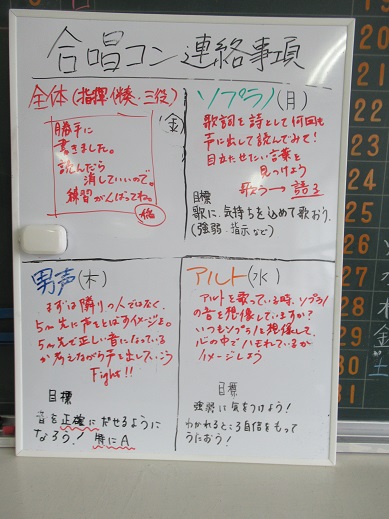 合唱コン 連絡事項
全体(指揮・伴奏・三役)
(金)
勝手に
書きました。
読んだら
消していいので。
練習がんばってね。
ソプラノ(月)
歌詞を詩として何回も
声に出して読んでみて!
目立たせたい言葉を
見つけよう
歌う→語る
目標
歌に、気持ちを込めて歌おう。
(強弱・指示など)
男声(木)
まずは隣りの人でなく、
5m先に声をとばすイメージを。
5m先で正しい音になっている
か考えながら声を出していこう
Fight!!
目標
音を正確にだせるように
なろう! 特にA
アルト(水)
アルトを歌っている時、ソプラノ
の音を想像していますか?
いつもソプラノを想像して、
心の中でハモれているか
イメージしよう
目標
強弱に気をつけよう!
わかれるところ自信をもって
うたおう!
24
25
26
27
28
29
30
水
木
金
土